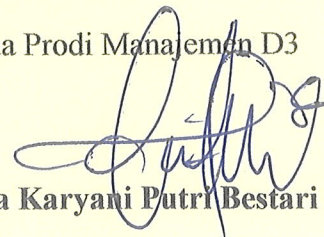 a Prodi Manajemen D3
a Karyani Putri Bestari